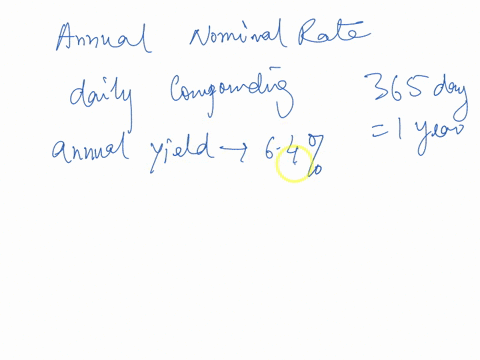 Annual Nominal Rate
daily Compounding 365 day
= 1 year
annual yield → 6.4%